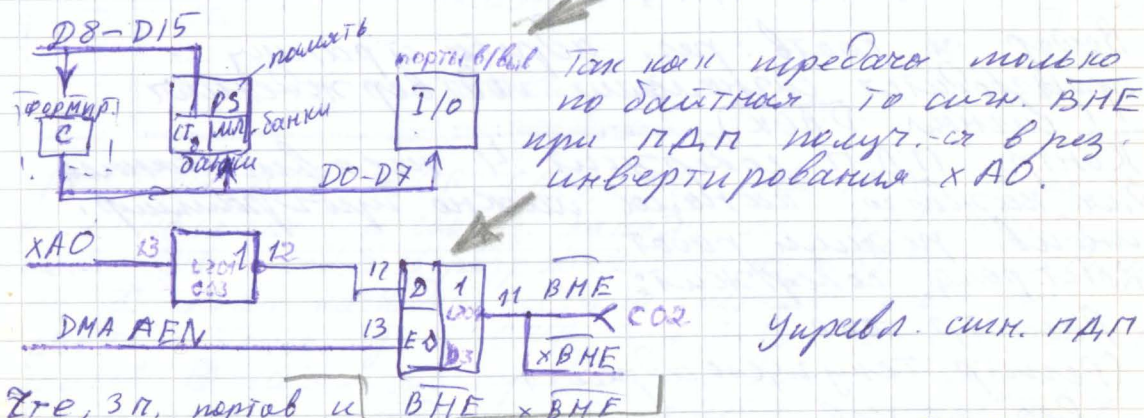 D8-D15
память
порты в/выв
формир.
C
PS
СТ. МЛ
банки
банки
I/O
D0-D7
Так как передача только
по байтная то сигн. BHE
при ПДП получ-ся в рез.
инвертирования xA0.
xA0
13
1
12
12
D
1
11
BHE
C02
DMA AEN
13
xBHE
Управл. сигн. ПДП
Чте, Зп. портов и BHE xBHE